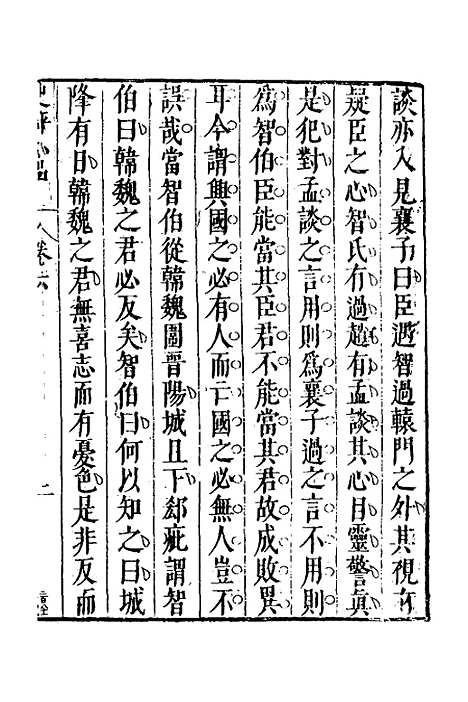 談亦入見襄子曰臣遇智過轅門之外其視有
疑臣之心智氏有過趙有孟談其心目靈警眞
是犯對孟談之言用則爲襄子過之言不用則
爲智伯臣能當其臣君不能當其君故成敗異
耳今謂興國之必有人而亡國之必無人豈不
誤哉當智伯從韓魏圍晋陽城且下郄疵謂智
伯曰韓魏之君必反矣智伯曰何以知之曰城
降有日韓魏之君無喜志而有憂色是非反而
卷六